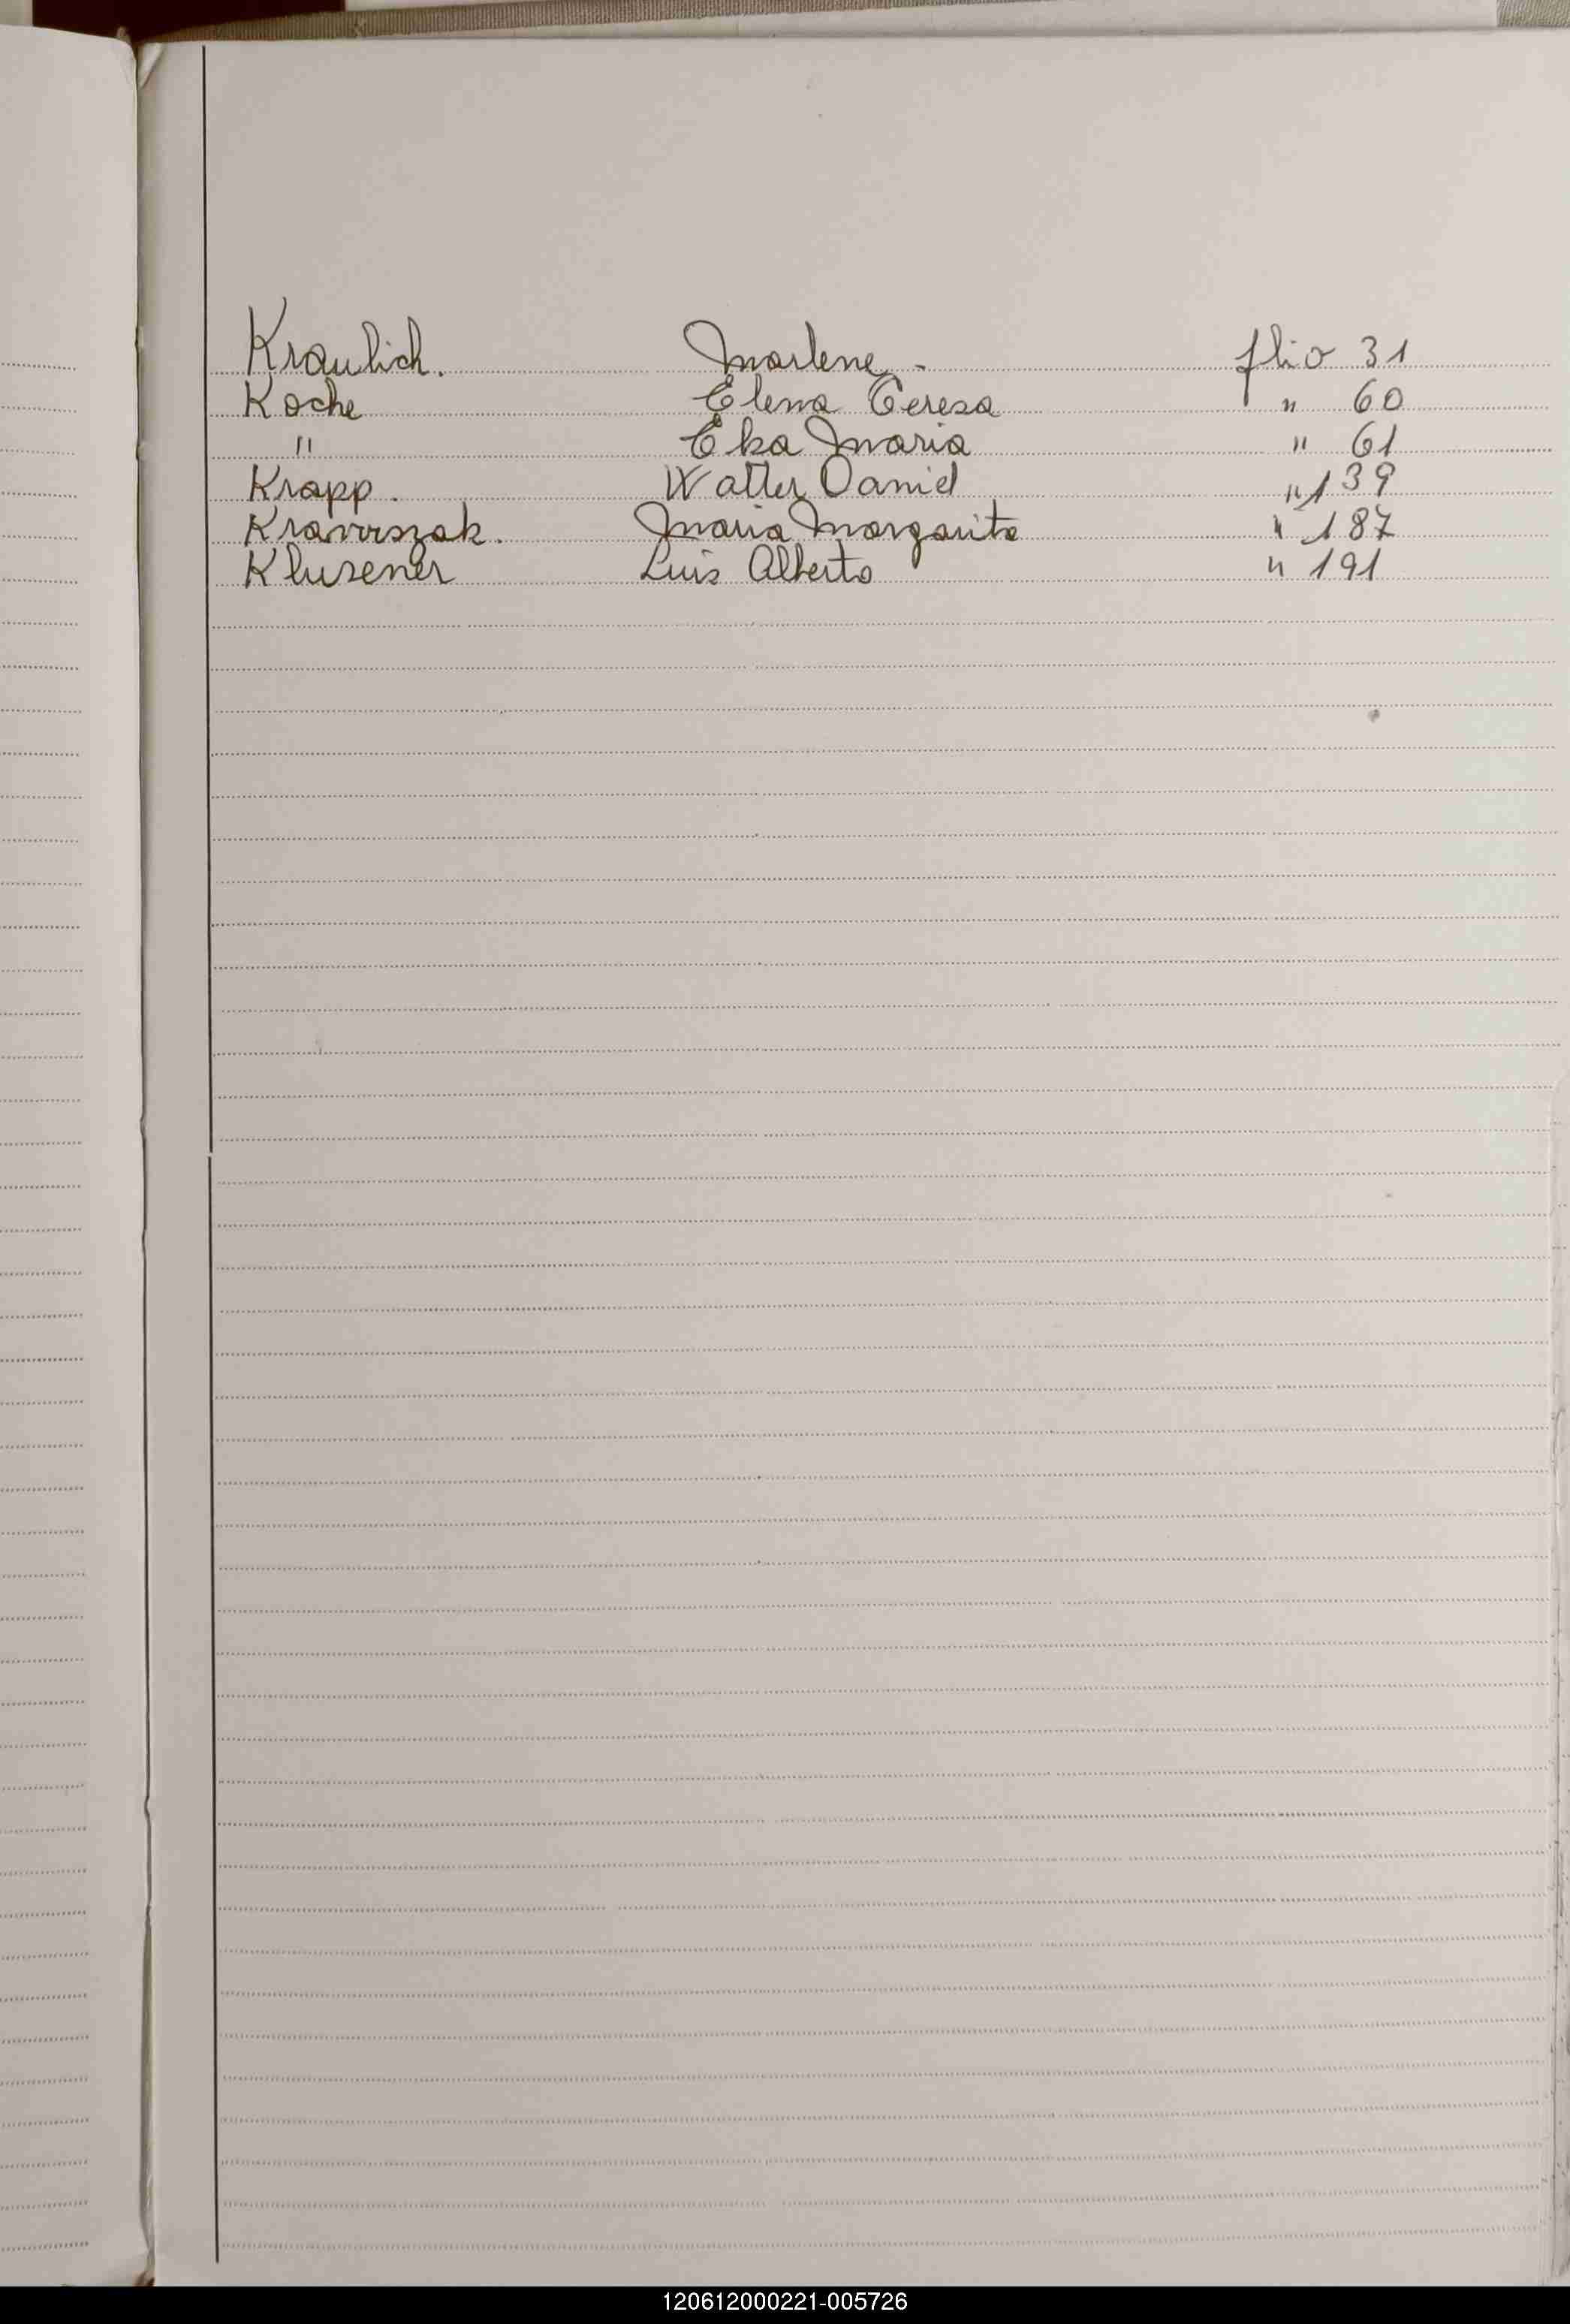 Kraulich. Marlene. flio 31
Koche Elena Teresa " 60
" Elsa Maria " 61
Krapp. Walter Daniel " 139
Maria Margarita " 187
Klusener Luis Alberto " 191
120612000221-005726